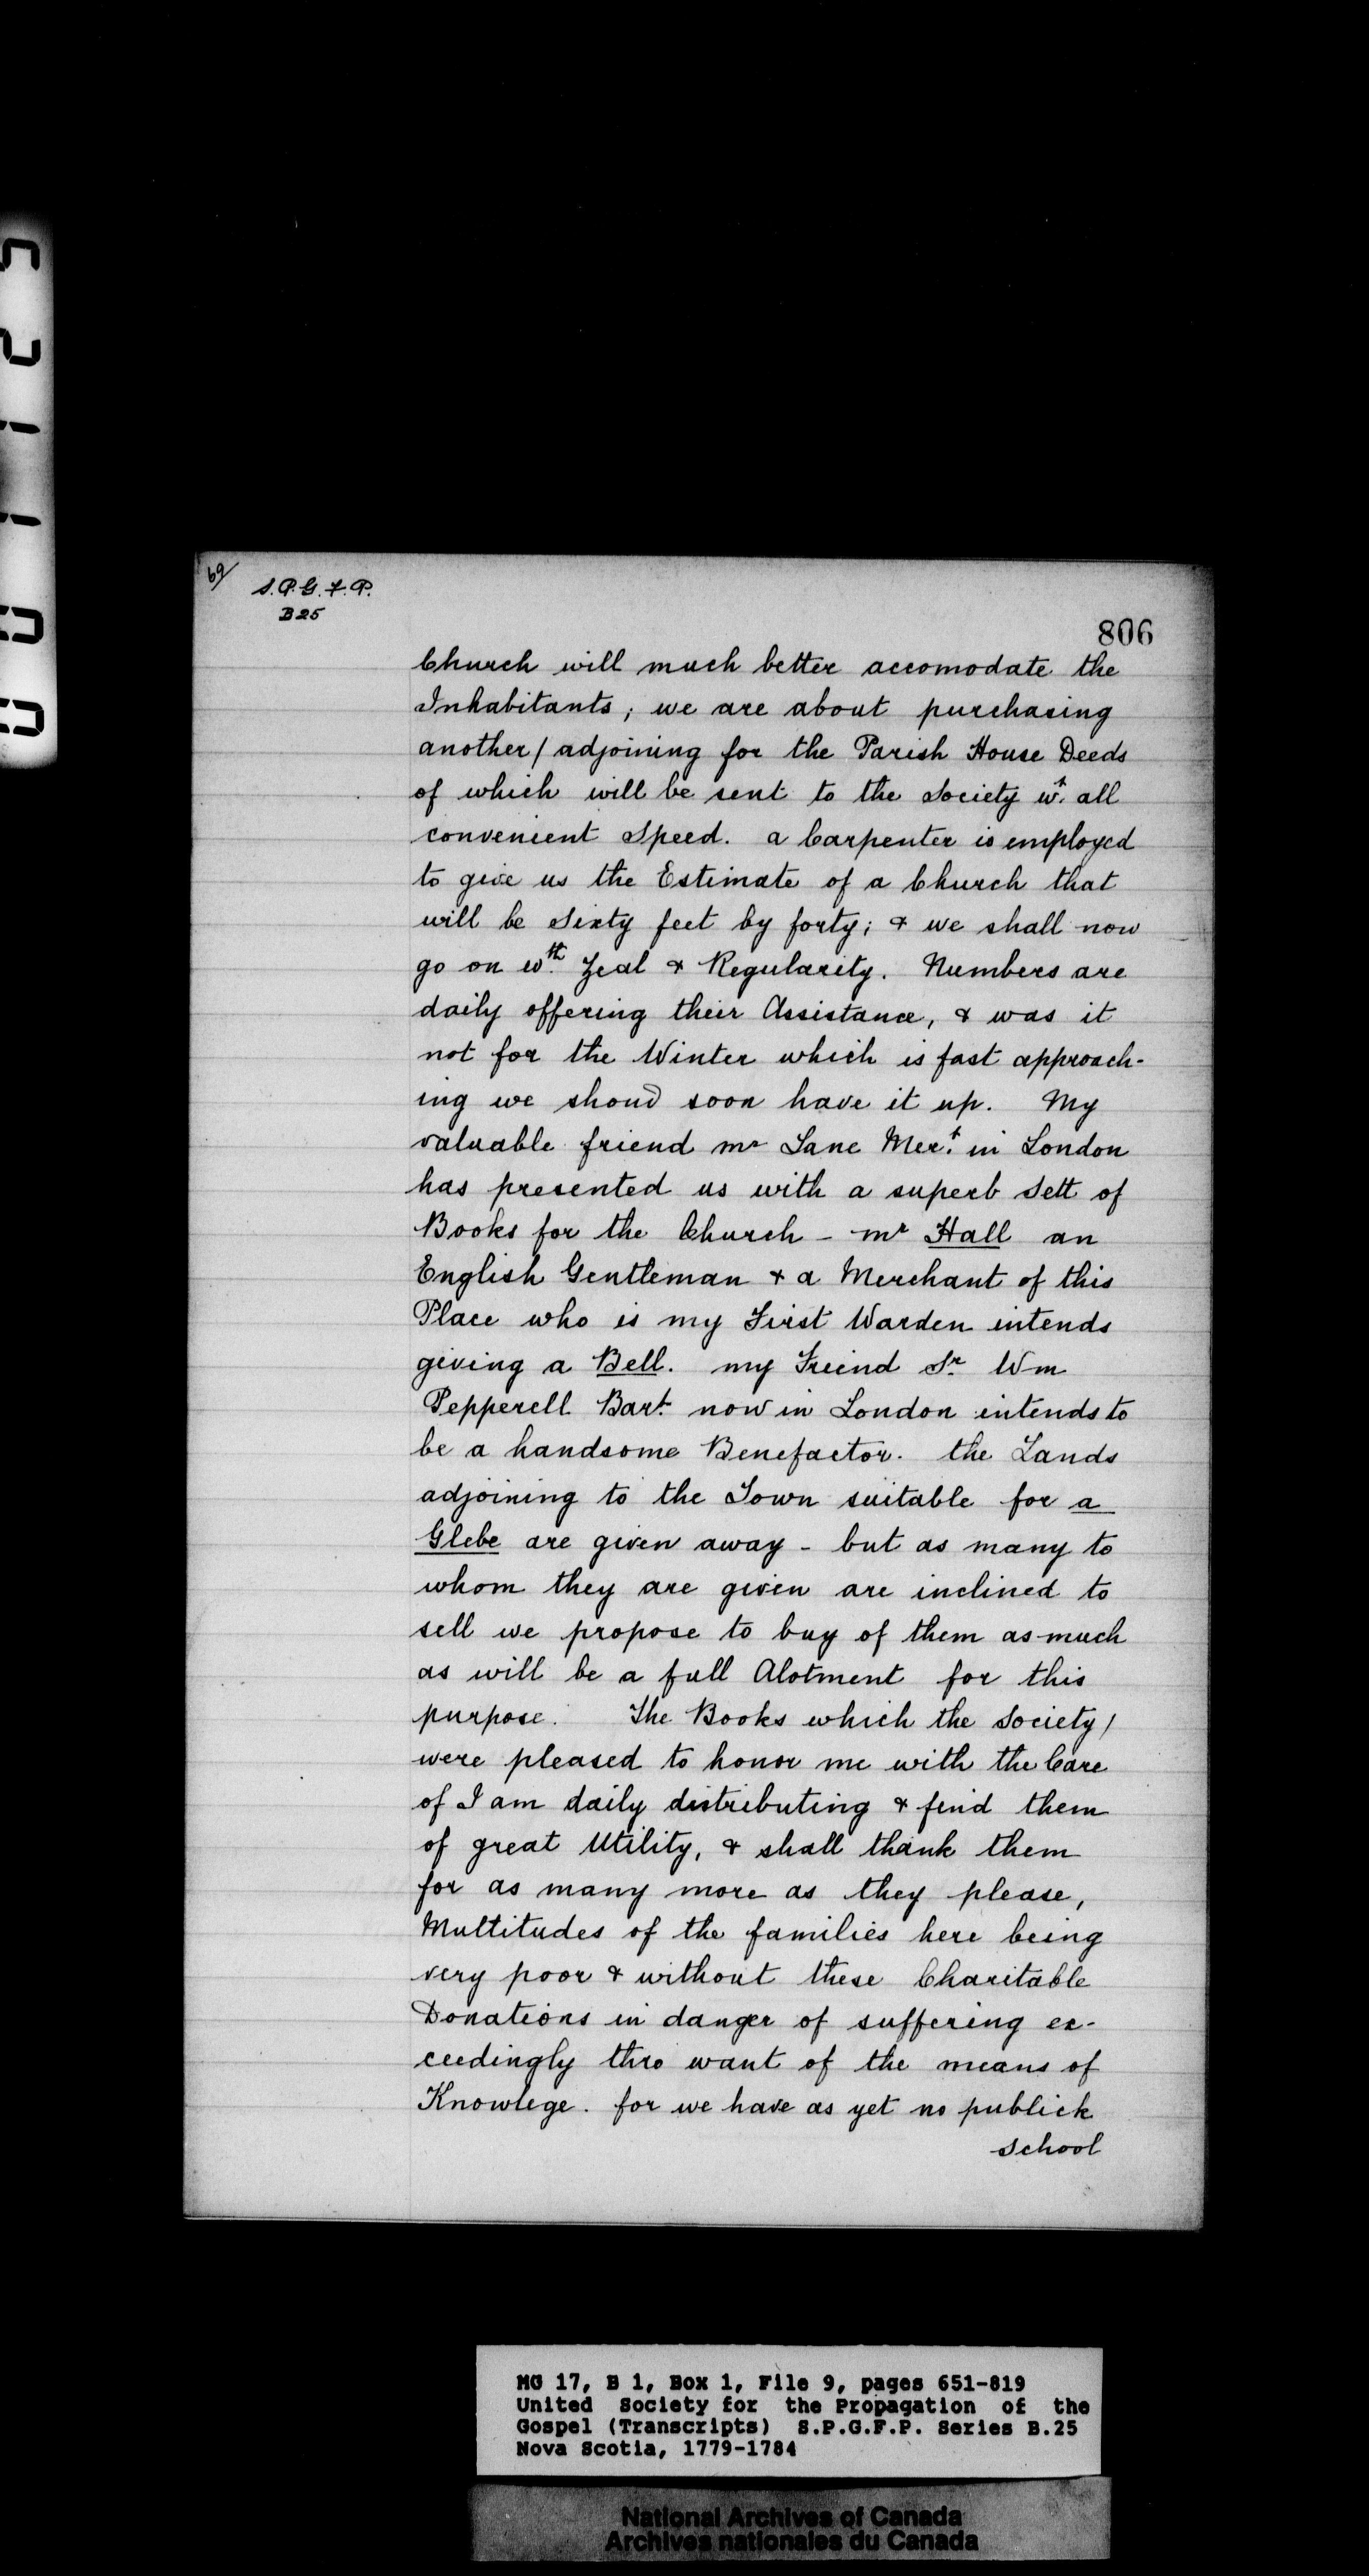 69/
S.P.G.F.P.
B25
806
Church will much better accomodate the
Inhabitants; we are about purchasing
another/ adjoining for the Parish House Deeds
of which will be sent to the Society wt. all
convenient Speed. a Carpenter is employed
to give us the Estimate of a Church that
will be Sixty feet by forty; & we shall now
go on wth. Zeal & Regularity. Numbers are
daily offering their Assistance, & was it
not for the Winter which is fast approach-
ing we shoud soon have it up. My
valuable friend mr Lane Mert. in London
has presented us with a superb Sett of
Books for the Church - mr Hall an
English Gentleman & a Merchant of this
Place who is my First Warden intends
giving a Bell. my Friend Sr. Wm
Pepperell Bart. now in London intends to
be a handsome Benefactor. the Lands
adjoining to the Town suitable for a
Glebe are given away - but as many to
whom they are given are inclined to
sell we propose to buy of them as much
as will be a full Alotment for this
purpose. The Books which the Society/
were pleased to honor me with the Care
of I am daily distributing & find them
of great Utility, & shall thank them
for as many more as they please,
Multitudes of the families here being
very poor & without these Charitable
Donations in danger of suffering ex-
ceedingly thro want of the means of
Knowlege. for we have as yet no publick
School
MG 17, B 1, Box 1, File 9, pages 651-819
United Society for the Propagation of the
Gospel (Transcripts) S.P.G.F.P. Series B.25
Nova Scotia, 1779-1784
National Archives of Canada
Archives nationales du Canada